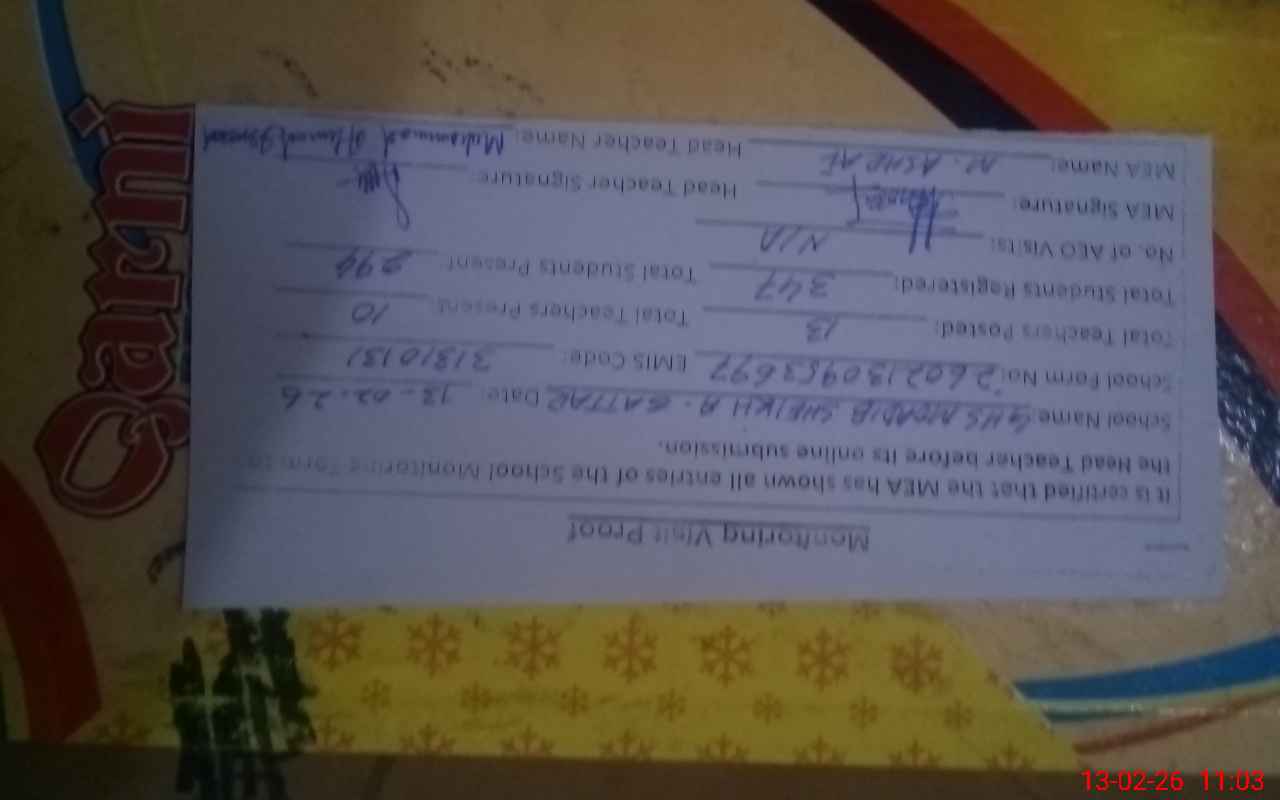 Monitoring Visit Proof
It is certified that the MEA has shown all entries of the School Monitoring Form to
the Head Teacher before its online submission.
School Name: GHS SHEIKH A. SATTAR Date: 13-02-26
School Form No: 260213095369 EMIS Code: 31310131
Total Teachers Posted: 13 Total Teachers Present: 10
Total Students Registered: 347 Total Students Present: 294
No. of AEO Visits: N/A
MEA Signature: Head Teacher Signature:
MEA Name: M. ASHRAF Head Teacher Name: Muhammad
Sarni
13-02-26 11:03